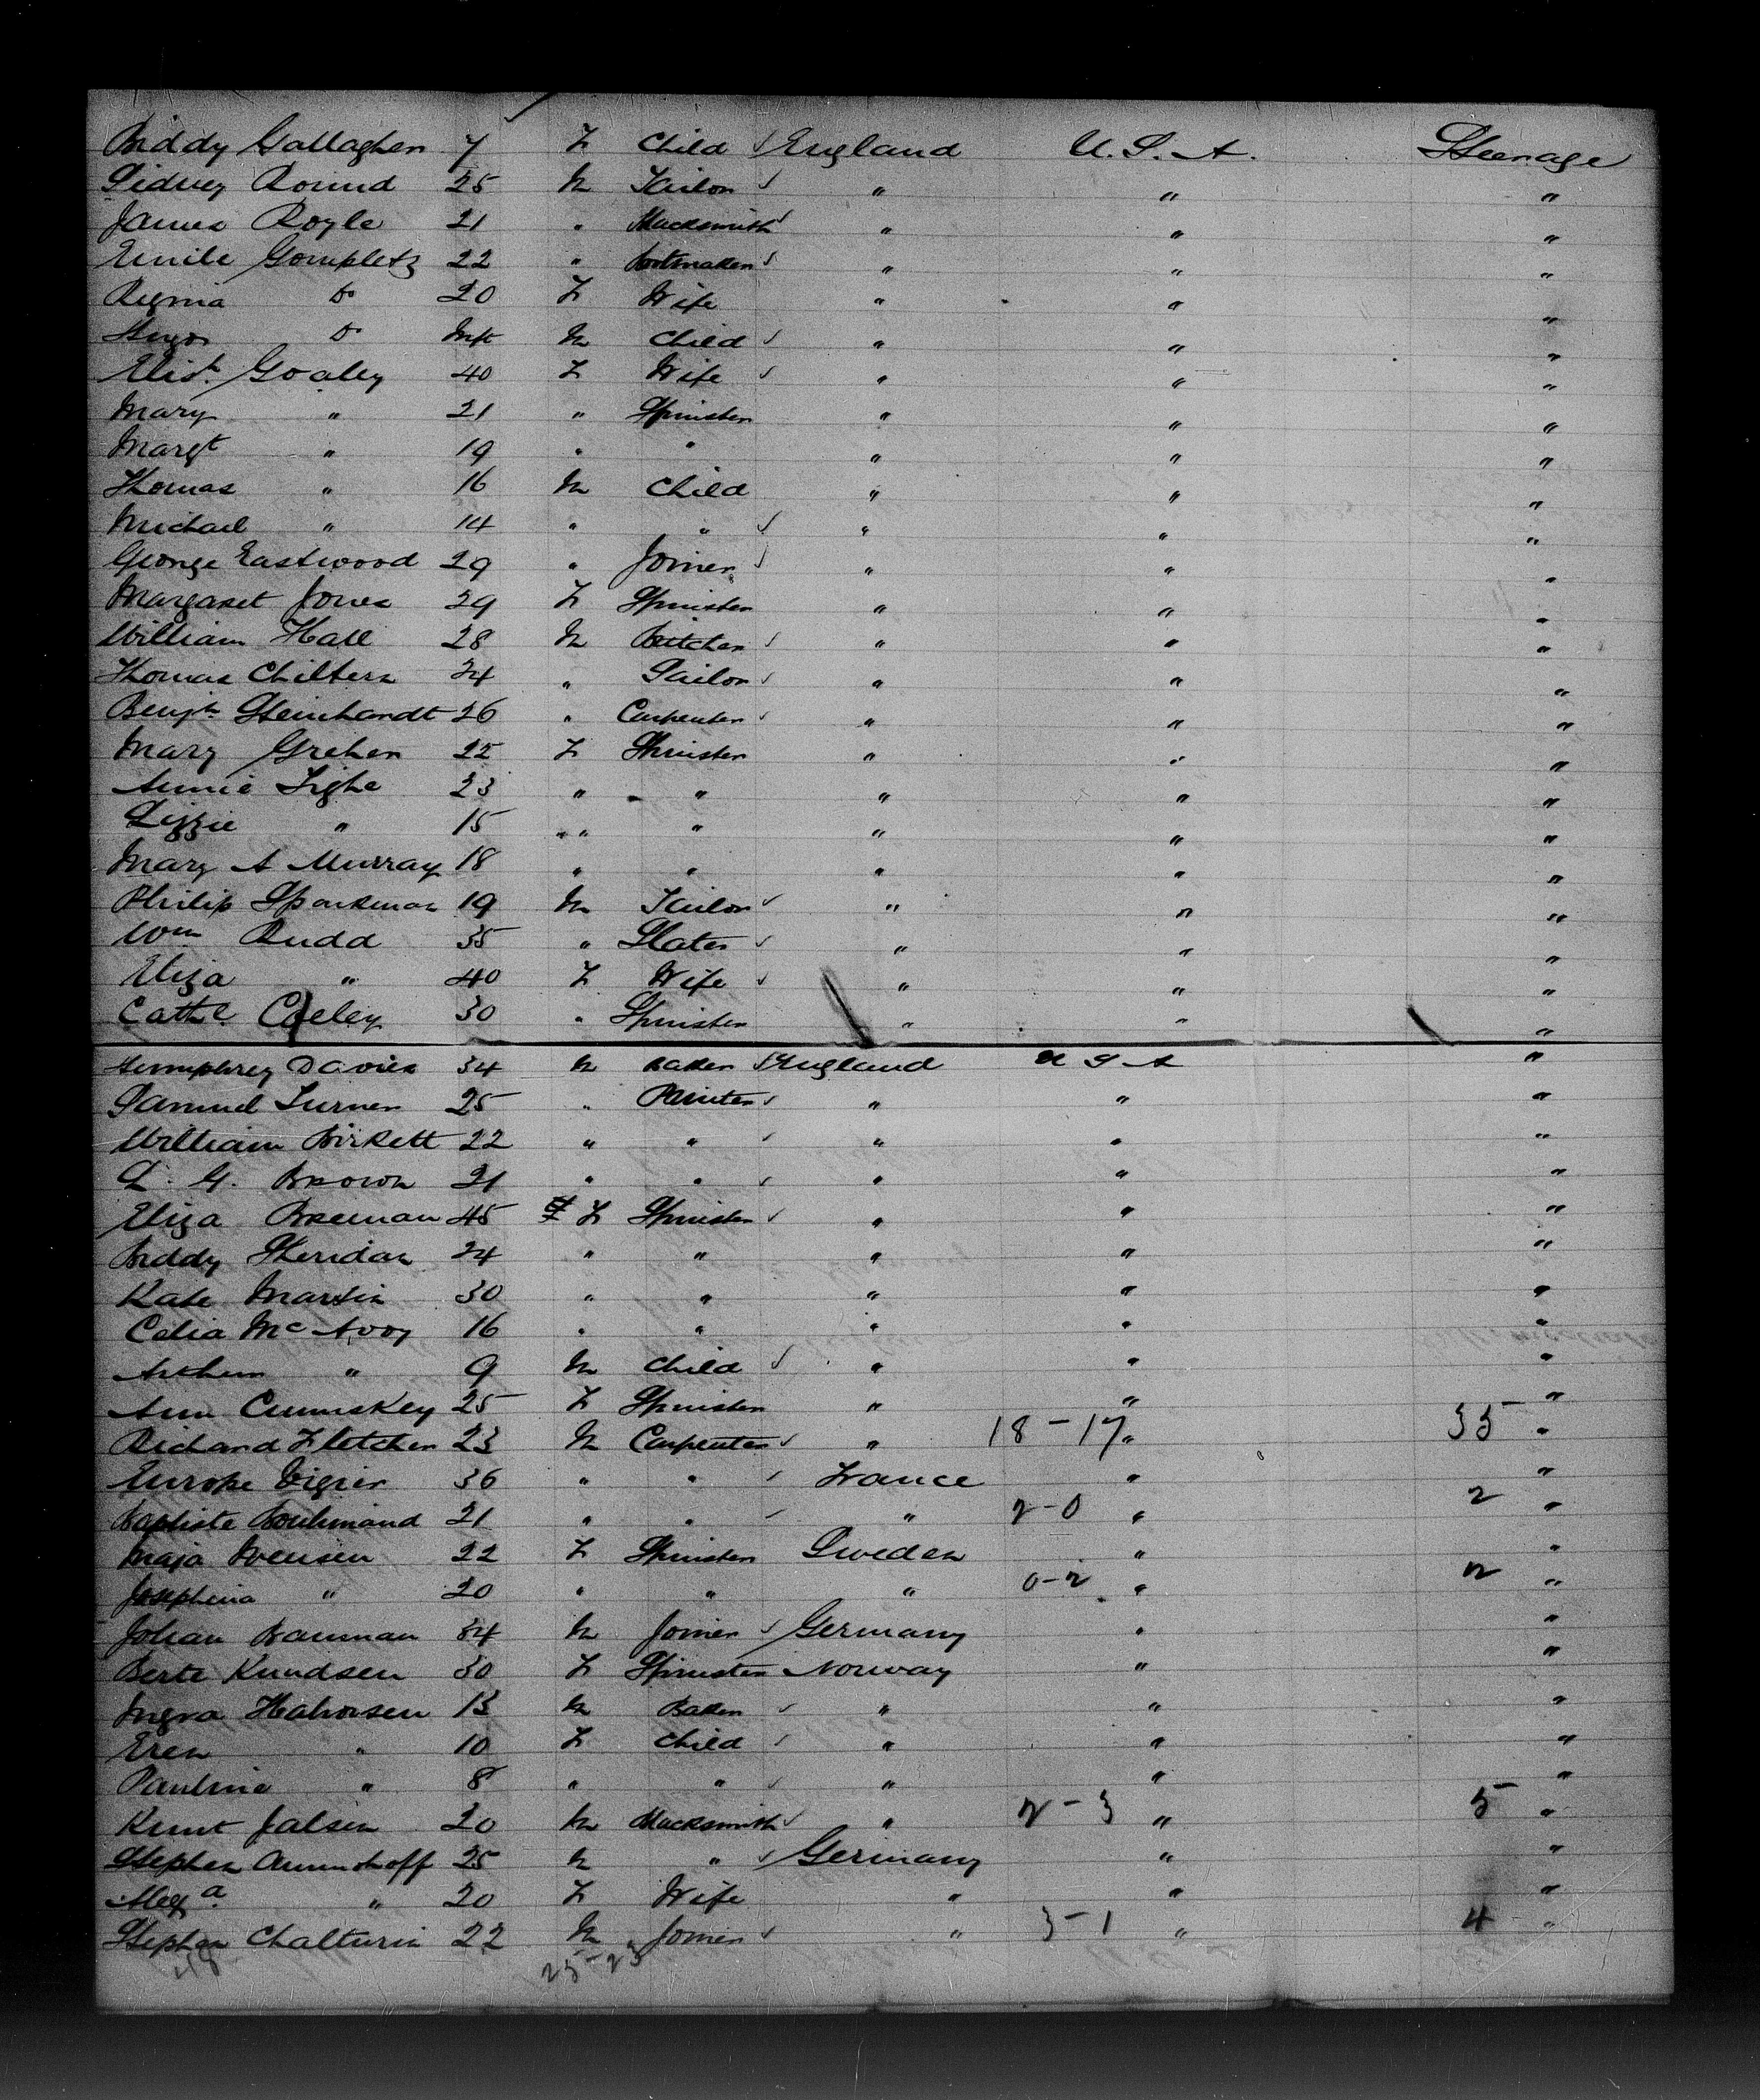 Biddy Gallagher 7 F Child England U.S.A. Steerage
Sidney Round 25 M Tailor " " "
James Royle 21 " Blacksmith " " "
Emile Gompletz 22 " Bootmaker " " "
Regina Do 20 F Wife " " "
Hugo Do Inft M Child " " "
Elisth Goaley 40 F Wife " " "
Mary " 21 " Spinster " " "
Margt " 19 " " " " "
Thomas " 16 M Child " " "
Michael " 14 " " " " "
George Eastwood 29 " Joiner " " "
Margaret Jones 29 F Spinster " " "
William Hall 28 M Butcher " " "
Thomas Chiltern 24 " Sailor " " "
Benjn Steinhardt 26 " Carpenter " " "
Mary Greher 22 F Spinster " " "
Annie Tighe 23 " " " " "
Lizzie " 15 " " " " "
Mary A Murray 18 " " " " "
Philip Sparkman 19 M Tailor " " "
Wm Rudd 35 " Slater " " "
Eliza " 40 F Wife " " "
Cathe Coeley 30 " Spinster " " "
Humphrey Davies 34 M Baker England U S A "
Samuel Turner 25 " Printer " " "
William Birkett 22 " " " " "
L. G. Brown 21 " " " " "
Eliza Breman 45 F Spinster " " "
Biddy Sheridan 24 " " " " "
Kate Martin 30 " " " " "
Celia McAvoy 16 " " " " "
Arthur " 9 M Child " " "
Ann Cumiskey 25 F Spinster " " "
Richard Fletcher 23 M Carpenter " 18-17 " 35 "
Europe Vigier 36 " " France " "
Baptiste 21 " " " 2-0 " 2 "
Maja Svensen 22 F Spinster Sweden " "
Josephina " 20 " " " 0-2 " 2 "
Johan Bauman 34 M Joiner Germany " "
Berte Knudsen 30 F Spinster Norway " "
Ingva Halvorsen 13 M Baker " " "
Eren " 10 F Child " " "
Pauline " 8 " " " " "
Knut Jalsen 20 M Blacksmith " 2-3 " 5 "
Stephen 25 M " Germany " "
Alexa " 20 F Wife " " "
Stephan Chalturin 22 M Joiner " 3-1 " 4 "
48 25-23